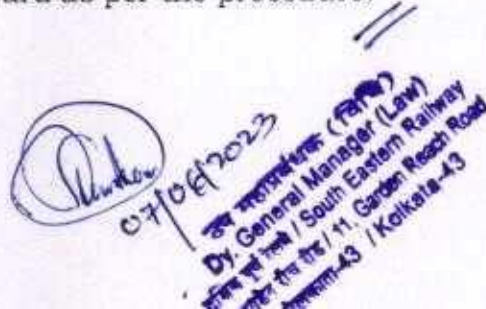 as per the procedure.
07/06/2023
उप महाप्रबंधक (विधि)
Dy. General Manager (Law)
दक्षिण पूर्व रेलवे / South Eastern Railway
गार्डेन रीच रोड / 11, Garden Reach Road
कोलकाता-43 / Kolkata-43